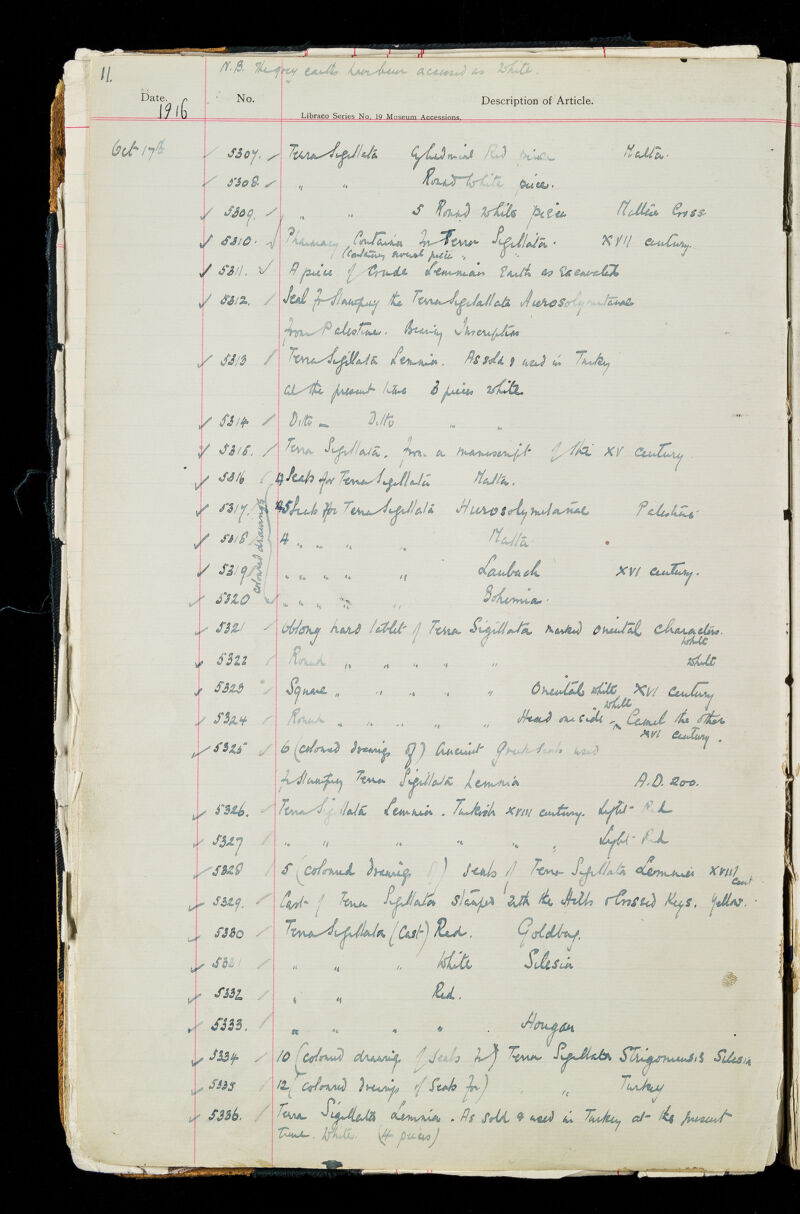 11.
N.B. The grey earths have been accessed as White.
Date. No. Description of Article.
1916
Libraco Series No. 19 Museum Accessions.
Oct 17th 5307. Terra Sigillata Cylindrical Red piece Malta.
5308. " " Round White piece.
5309. " " 5 Round White piece Maltese Cross
5310. Pharmacy Container for Terra Sigillata. XVII century.
(Contains round piece "
5311. A piece of Crude Lemnian Earth as Excavated
5312. Seal for Stamping the Terra Sigillata Hierosolymitanae
from Palestine. Bearing Inscription
5313 Terra Sigillata Lemnia. As sold & used in Turkey
at the present time 3 pieces white
5314 Ditto - Ditto " "
5315. Terra Sigillata. from a manuscript of the XV century.
5316 4 Seals for Terra Sigillata Malta.
5317. 5 Seals for Terra Sigillata Hierosolymitanae Palestine
coloured drawings
5318 4 " " " " Malta
5319 " " " " " Laubach XVI century.
5320 " " " " " Bohemia.
5321 Oblong hard tablet of Terra Sigillata marked oriental characters.
White
5322 Round " " " " " White
5323 Square " " " " " Oriental white XVI century
5324 Round " " " " " Head one side - Camel the other
white
XVI century.
5325 6 (coloured drawings of) Ancient Greek Seals used
for Stamping Terra Sigillata Lemnia A.D. 200.
5326. Terra Sigillata Lemnia. Turkish XVIII century. Light-Red
5327 " " " " " " Light-Red
5328 5 (coloured drawings of) seals of Terra Sigillata Lemnia XVIII
Cent
5329. Cast of Terra Sigillata stamped with the Hills & Crossed Keys. Yellow.
5330 Terra Sigillata (Cast) Red. Goldberg.
5331 " " " White Silesia
5332 " " Red.
5333. " " " "
5334 10 (coloured drawings of Seals for) Terra Sigillata Strigoniensis Silesia
5335 12 (coloured drawings of Seals for) " " Turkey
5336. Terra Sigillata Lemnia. As Sold & used in Turkey at the present
time. White. (4 pieces)